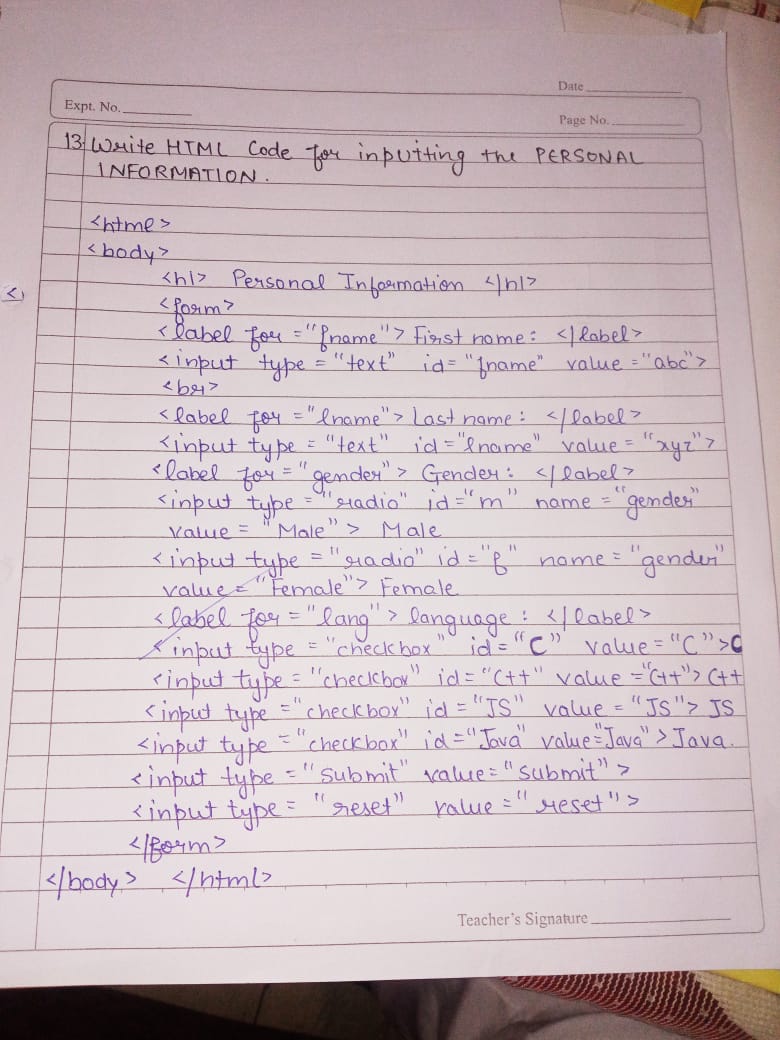 Date
Expt. No.
Page No.
13) Write HTML Code for inputting the PERSONAL
INFORMATION.
<html>
<body>
<h1> Personal Information </h1>
<form>
<label for = "fname"> First name : </label>
<input type = "text" id = "fname" value = "abc">
<br>
<label for = "lname"> Last name : </label>
<input type = "text" id = "lname" value = "xyz">
<label for = "gender"> Gender : </label>
<input type = "radio" id = "m" name = "gender"
value = "Male"> Male
<input type = "radio" id = "f" name = "gender"
value = "Female"> Female
<label for = "lang"> language : </label>
<input type = "checkbox" id = "C" value = "C">C
<input type = "checkbox" id = "C++" value = "C++"> C++
<input type = "checkbox" id = "JS" value = "JS"> JS
<input type = "checkbox" id = "Java" value = "Java"> Java.
<input type = "submit" value = "submit">
<input type = "reset" value = "reset">
</form>
</body> </html>
Teacher's Signature